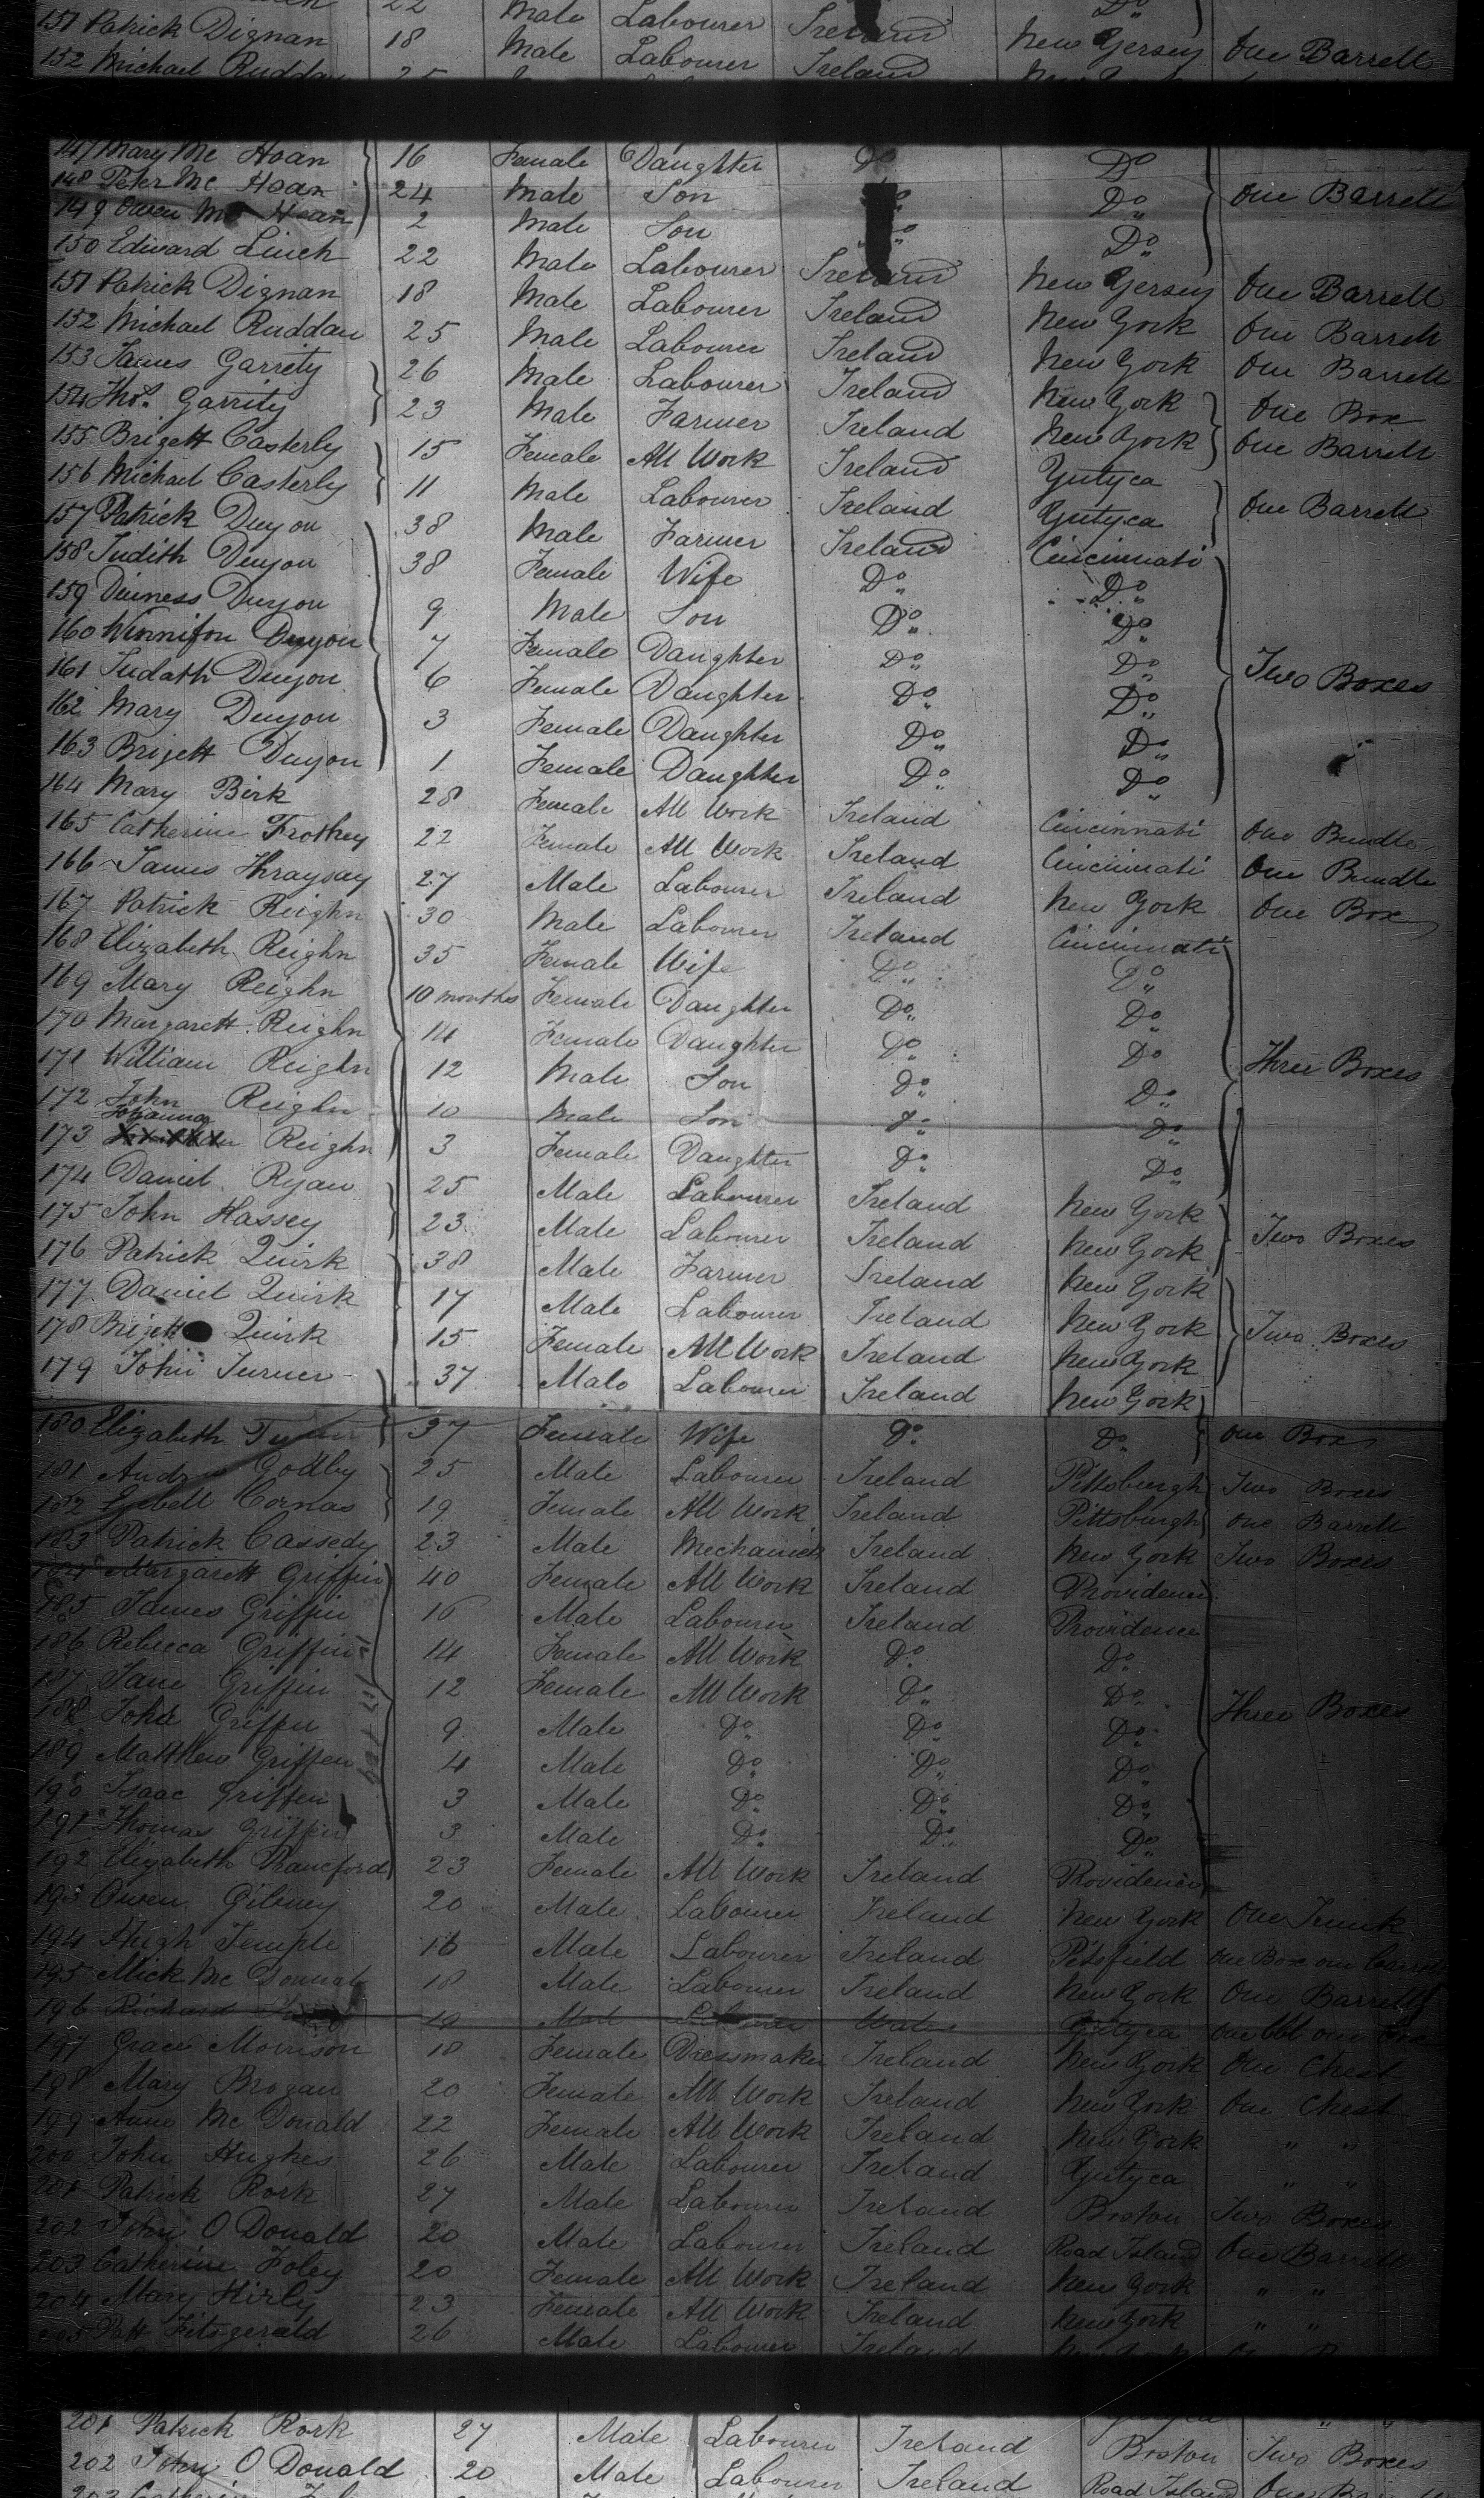 22 Male Labourer Ireland Do
151 Patrick Dignan 18 Male Labourer Ireland New Yersey One Barrell
152 Michael Ruddan 25
147 Mary Mc Hoan 16 Female Daughter Do Do
148 Peter Mc Hoan 24 Male Son Do One Barrell
149 Owen Mc Hoan 2 Male Son Do Do
150 Edward Linch 22 Male Labourer Ireland New Yersey One Barrell
151 Patrick Dignan 18 Male Labourer Ireland New York One Barrell
152 Michael Ruddan 25 Male Labourer Ireland New York One Barrell
153 James Garrety 26 Male Labourer Ireland New York One Box
154 Thos. Garrity 23 Male Farmer Ireland New York One Barrell
155 Brigett Casterly 15 Female All Work Ireland Yutyca
156 Michael Casterly 11 Male Labourer Ireland Yutyca One Barrell
157 Patrick Duyon 38 Male Farmer Ireland Cincinnati
158 Judith Duyon 38 Female Wife Do Do
159 Duiness Duyon 9 Male Son Do Do
160 Winnifon Duyon 7 Female Daughter Do Do
161 Judath Duyon 6 Female Daughter Do Do Two Boxes
162 Mary Duyon 3 Female Daughter Do Do
163 Brigett Duyon 1 Female Daughter Do Do
164 Mary Birk 28 Female All Work Ireland Cincinnati One Bundle
165 Catherine Frothey 22 Female All Work Ireland Cincinnati One Bundle
166 James Thraysay 27 Male Labourer Ireland New York One Box
167 Patrick Reighn 30 Male Labourer Ireland Cincinnati
168 Elizabeth Reighn 35 Female Wife Do Do
169 Mary Reighn 10 months Female Daughter Do Do
170 Margarett Reighn 14 Female Daughter Do Do
171 William Reighn 12 Male Son Do Do Three Boxes
172 John Reighn 10 Male Son Do Do
Johanna
173 Reighn 3 Female Daughter Do Do
174 Daniel Ryan 25 Male Labourer Ireland New York
175 John Hassey 23 Male Labourer Ireland New York Two Boxes
176 Patrick Quirk 38 Male Farmer Ireland New York
177 Daniel Quirk 17 Male Labourer Ireland New York
178 Brigett Quirk 15 Female All Work Ireland New York Two Boxes
179 John Turner 37 Male Labourer Ireland New York
180 Elizabeth Turner 37 Female Wife Do Do One Box
181 Andrew Godby 25 Male Labourer Ireland Pittsburgh Two Boxes
182 Cornas 19 Female All Work Ireland Pittsburgh One Barrell
183 Patrick Cassedy 23 Male Mechanick Ireland New York Two Boxes
184 Margarett Griffin 40 Female All Work Ireland Providence
185 James Griffin 16 Male Labourer Ireland Providence
186 Rebecca Griffin 14 Female All Work Do Do
187 Jane Griffin 12 Female All Work Do Do
188 John Griffen 9 Male Do Do Do Three Boxes
189 Matthew Griffen 4 Male Do Do Do
190 Isaac Griffen 3 Male Do Do Do
191 Thomas Griffen 3 Male Do Do Do
192 Elizabeth Tranceford 23 Female All Work Ireland Providence
193 Owen Gilmey 20 Male Labourer Ireland New York One Trunk
194 Hugh Temple 16 Male Labourer Ireland Pitsfield One Box one Barrell
195 Mick Mc Donnald 18 Male Labourer Ireland New York One Barrell
196 Richard 19 Male Labourer Wales Yutyca One bbl one Box
197 Grace Morrison 18 Female Dressmaker Ireland New York One Chest
198 Mary Brogan 20 Female All Work Ireland New York One Chest
199 Anne Mc Donald 22 Female All Work Ireland New York " "
200 John Hughes 26 Male Labourer Ireland Yutyca " "
201 Patrick Rork 27 Male Labourer Ireland Boston Two Boxes
202 John O Donald 20 Male Labourer Ireland Road Island One Barrell
203 Catherine Foley 20 Female All Work Ireland New York " "
204 Mary Hirly 23 Female All Work Ireland New York " "
205 Patt Fitsgerald 26 Male Labourer Ireland New York
201 Patrick Rork 27 Male Labourer Ireland Boston Two Boxes
202 John O Donald 20 Male Labourer Ireland Road Island One